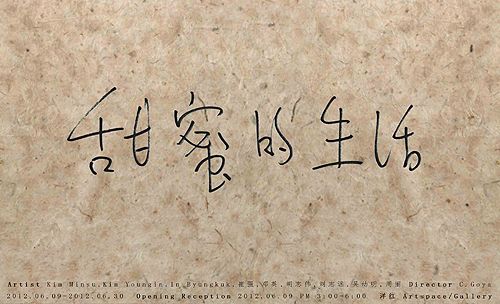 甜蜜的生活
Artist Kim Minsu,Kim Youngin,In Byungkuk,崔强,邓英,胡志伟,刘志达,吴幼明,周围 Director C.Goya
2012.06.09-2012.06.30 Opening Reception 2012.06.09 PM 3:00-6:00 泮红 Artspace/Gallery